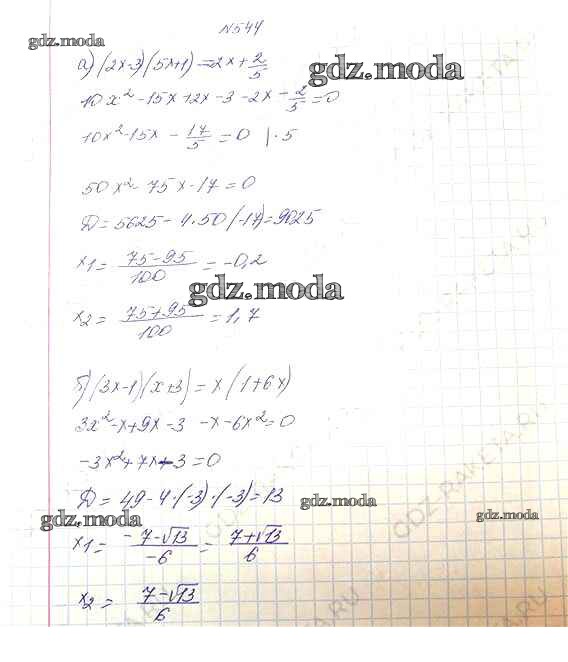 №544
gdz.moda
а) (2x-3)(5x+1) = 2x + 2/5
gdz.moda
10x² - 15x + 2x - 3 - 2x - 2/5 = 0
10x² - 15x - 17/5 = 0 | · 5
50x² - 75x - 17 = 0
D = 5625 - 4·50(-17) = 9025
x1 = (75-95)/100 = -0,2
gdz.moda
x2 = (75+95)/100 = 1,7
б) (3x-1)(x+3) = x(1+6x)
3x² - x + 9x - 3 - x - 6x² = 0
-3x² + 7x - 3 = 0
D = 49 - 4·(-3)·(-3) = 13
gdz.moda
gdz.moda
gdz.moda
x1 = (-7-√13)/-6 = (7+√13)/6
x2 = (7-√13)/6
GDZ-RAKETA.RU